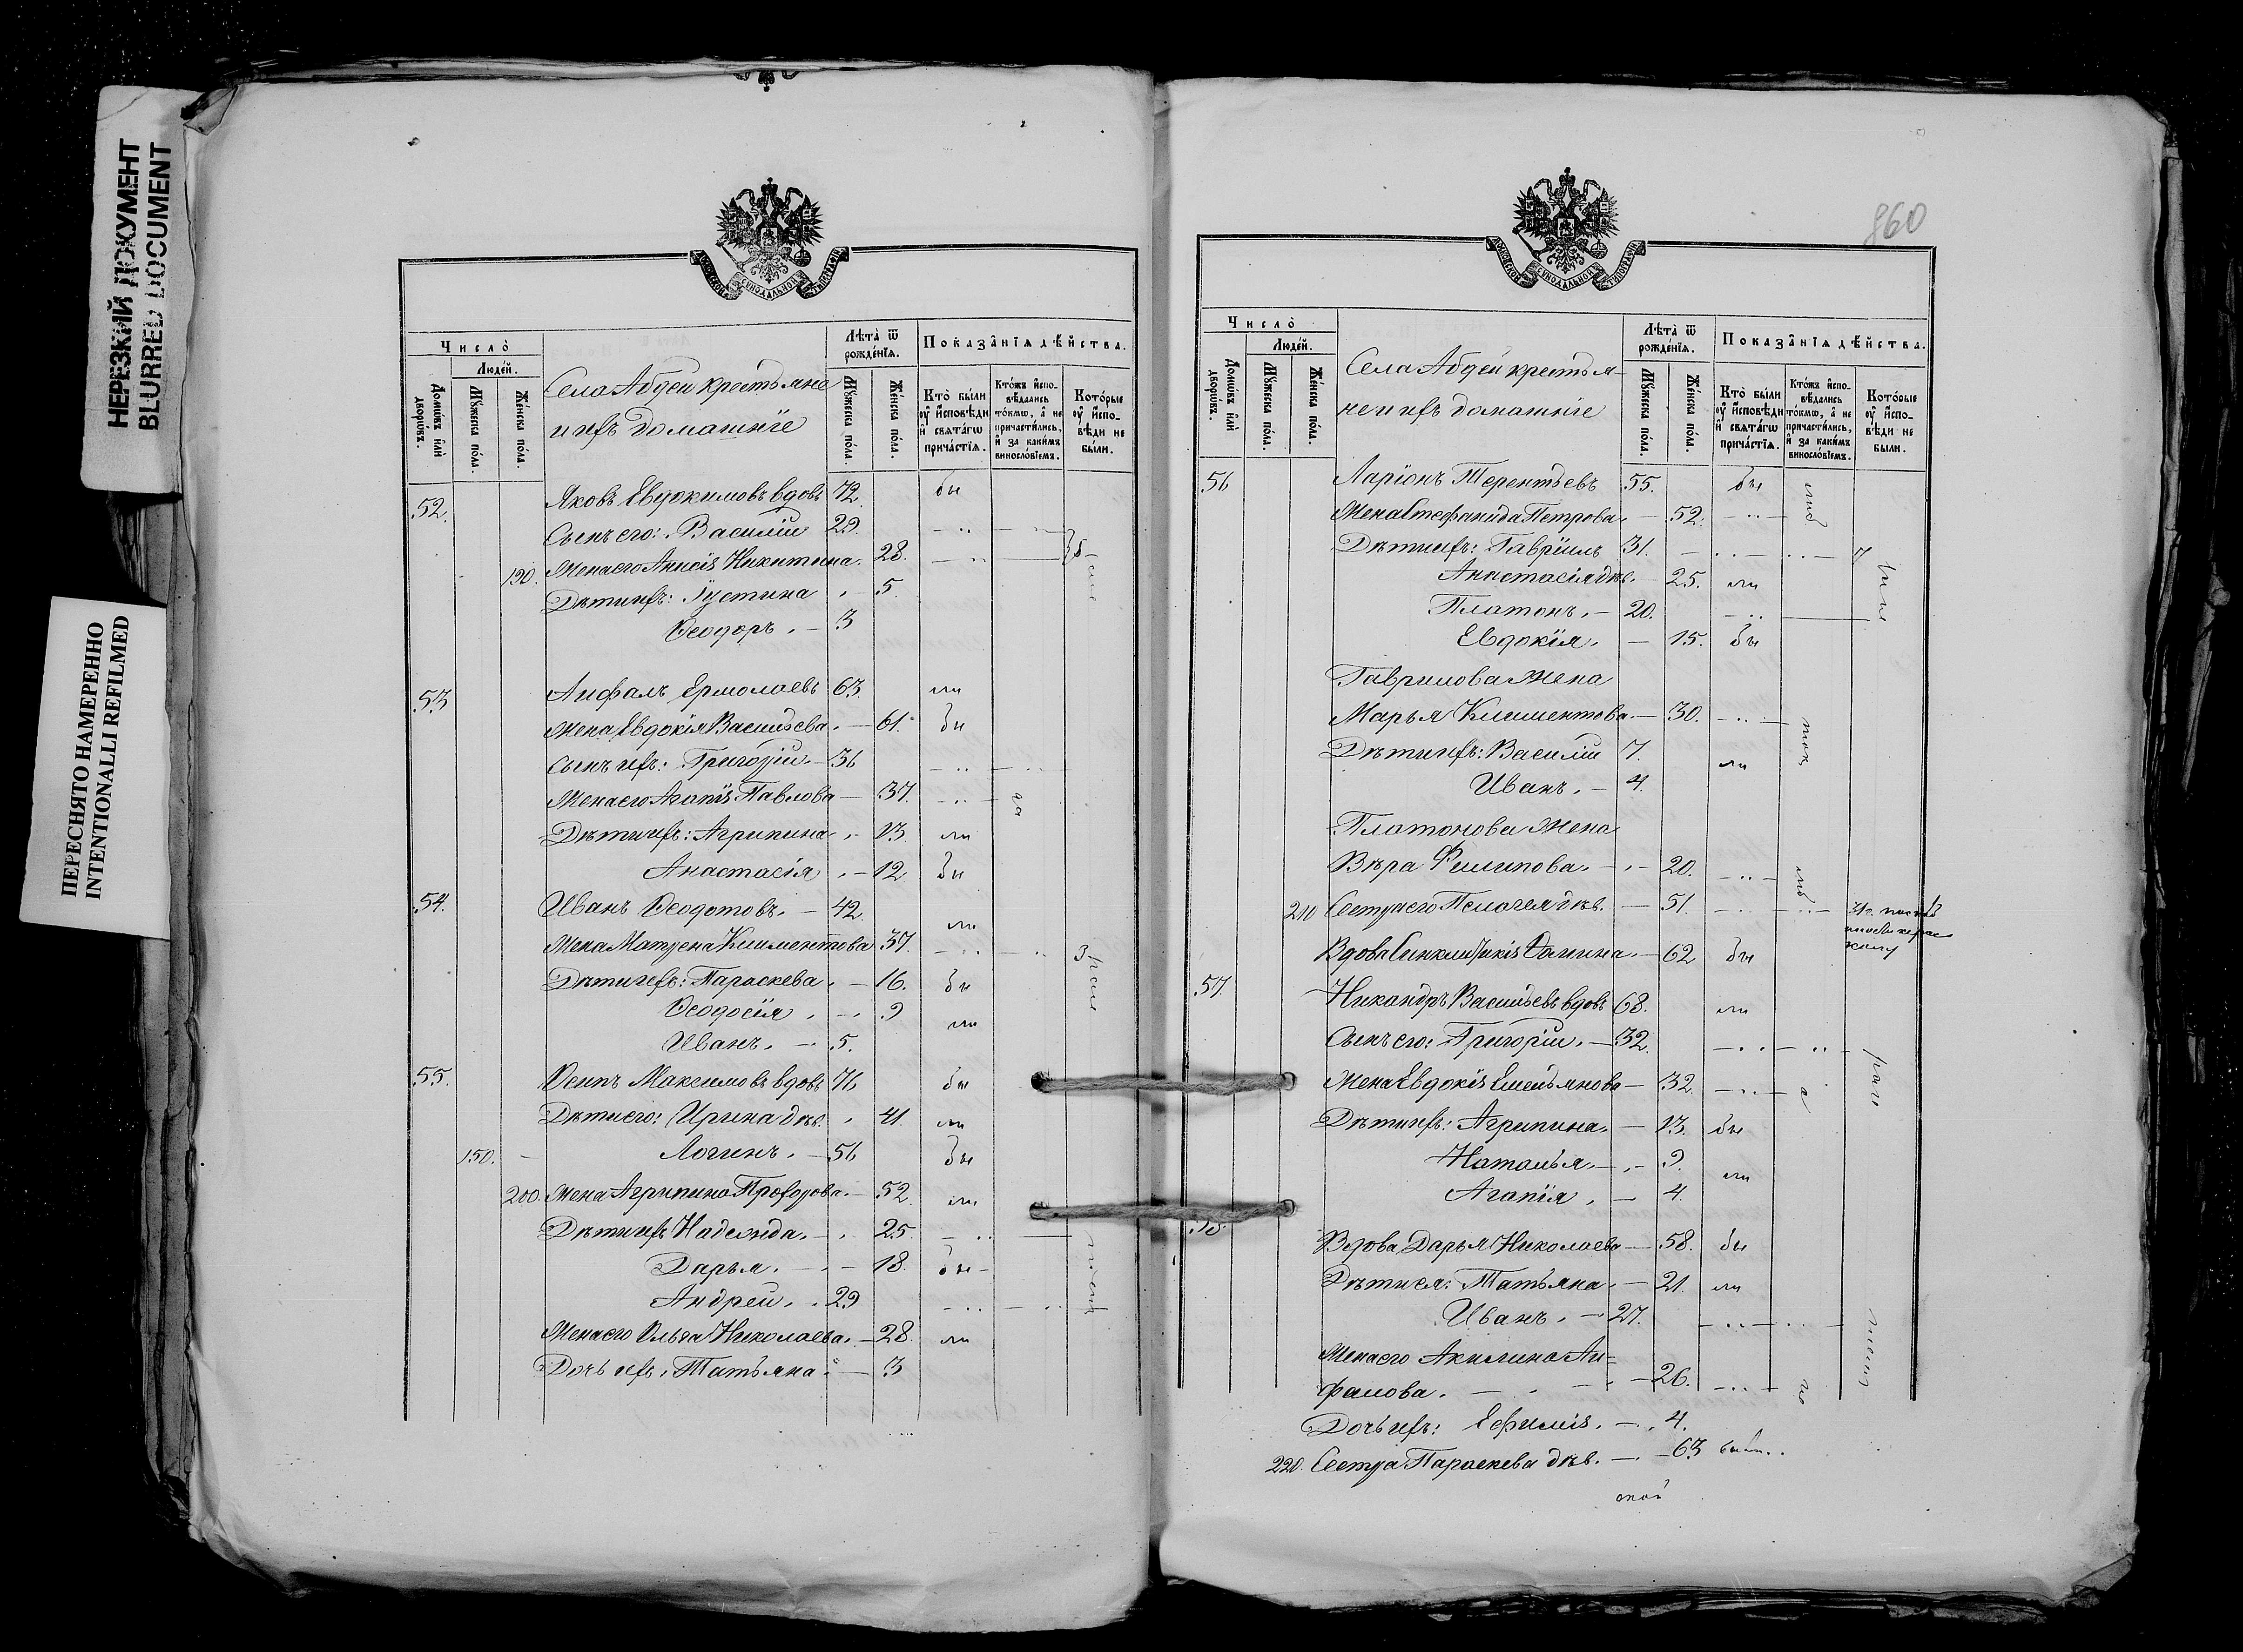 НЕРЕЗКИЙ ДОКУМЕНТ
BLURRED DOCUMENT
ПЕРЕСНЯТО НАМЕРЕННО
INTENTIONALLI REFILMED
Число̀
Люде́й.
Домѡ́въ и҆лѝ дворѡ́въ.
Мꙋ́жеска по́ла.
Же́нска по́ла.
Села Абдей крестьяне
и ихъ домашніе
Лѣта̀ ѿ рожде́нїѧ.
Мꙋ́жеска по́ла.
Же́нска по́ла.
Показа̂нїѧ дѣ́йства.
Кто̀ бы́ли ᲂу҆ и҆сповѣ́ди и҆ свѧта́гѡ прича́стїѧ.
Кто́жъ и҆сповѣ́дались то́кмѡ, а҆ не причасти́лись, и҆ за каки́мъ винословїемъ.
Кото́рые ᲂу҆ и҆сповѣ́ди не бы́ли.
52. Яковъ Евдокимовъ вдовъ 72. бы
Сынъ его: Василій 29.
190. Жена его Анисія Никитина. 28.
Дѣти ихъ: Іустина 5.
Ѳеодоръ. 3
53 Анфалъ Ермолаевъ 63. ли
Жена Евдокія Васильева. 61. бы
Сынъ ихъ: Григорій. 36
Жена его Агапія Павлова 37.
Дѣти ихъ: Агрипина 13. ли
Анастасія 12 бы
54. Иванъ Ѳеодотовъ. 42. ли
Жена Матрена Климентова 37.
Дѣти ихъ: Параскева. 16. бы
Ѳеодосія 9 ли
Иванъ. 5.
55. Осипъ Максимовъ вдовъ 76 бы
Дѣти его: Ирина дѣв. 41. ли
150. Логинъ. 56 бы
200. Жена Агрипина Прохорова. 52. ли
Дѣти ихъ Надежда. 25.
Дарья. 18. бы
Андрей. 29
Жена его Ольга Николаева. 28. ли
Дочь ихъ. Татьяна. 3
860
Число̀
Люде́й.
Домѡ́въ и҆лѝ дворѡ́въ.
Мꙋ́жеска по́ла.
Же́нска по́ла.
Села Абдей крестья-
не и ихъ домашніе
Лѣта̀ ѿ рожде́нїѧ.
Мꙋ́жеска по́ла.
Же́нска по́ла.
Показа̂нїѧ дѣ́йства.
Кто̀ бы́ли ᲂу҆ и҆сповѣ́ди и҆ свѧта́гѡ прича́стїѧ.
Кто́жъ и҆сповѣ́дались то́кмѡ, а҆ не причасти́лись, и҆ за каки́мъ винословїемъ.
Кото́рые ᲂу҆ и҆сповѣ́ди не бы́ли.
56 Ларіонъ Терентьевъ 55. бы
Жена Стефанида Петрова. 52.
Дѣти ихъ: Гавріилъ 31.
Анастасія дѣв. 25. ли
Платонъ. 20.
Евдокія. 15. бы
Гаврилова жена
Марья Климентова. 30.
Дѣти ихъ: Василій 7. ли
Иванъ. 4.
Платонова жена
Вѣра Филипова. 20.
210 Сестра его Пелагея дѣв. 51.
Вдова Синклитикія Ѳомина. 62 бы
57. Никандръ Васильевъ вдовъ 68. ли
Сынъ его: Григорій. 32.
Жена Евдокія Емельянова 32.
Дѣти ихъ: Агрипина. 13. бы
Наталья. 9. ли
Агапія. 4.
58. Вдова Дарья Николаева 58. бы
Дѣти ея: Татьяна. 21. ли
Иванъ. 27.
Жена его Акилина Ан=
фалова. 26.
Дочь ихъ: Ефимія. 4.
220. Сестра Параскева дѣв. 63